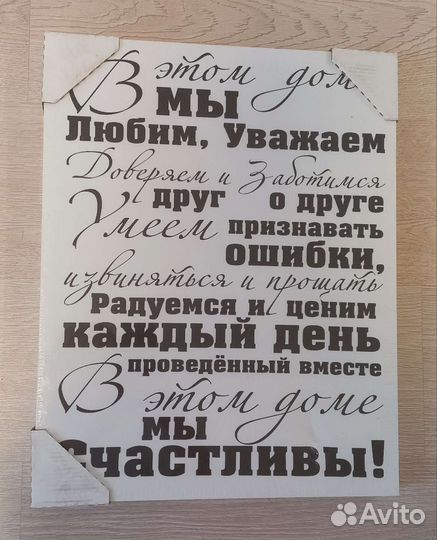 В этом доме
мы
Любим, Уважаем
Доверяем и Заботимся
друг о друге
Умеем признавать
ошибки,
извиняться и прощать
Радуемся и ценим
каждый день
проведённый вместе
В этом доме
мы
Счастливы!
Avito